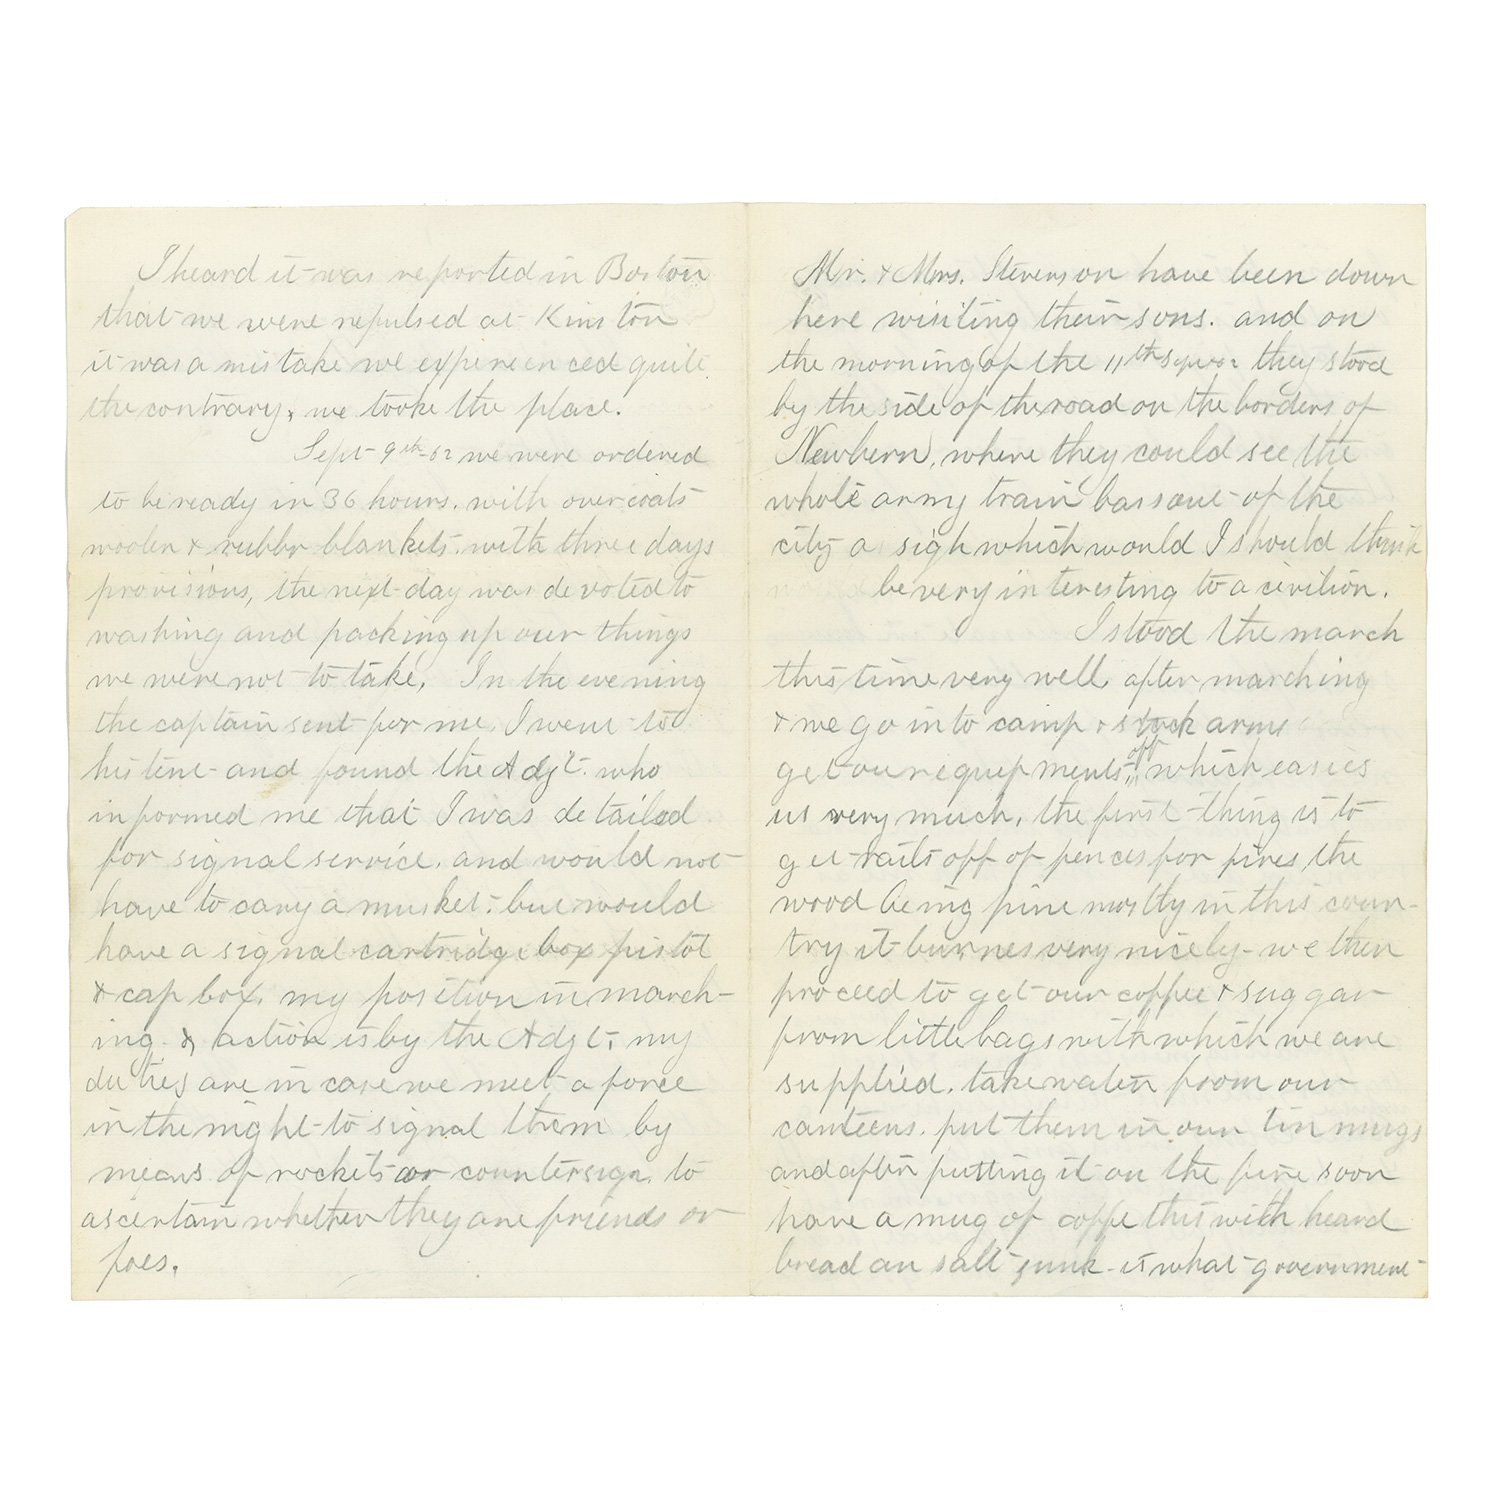 I heard it was reported in Boston
that we were repulsed at Kinston
it was a mistake we expireenced quite
the contrary, we tooke the place.
Sept 9th 62 we were ordered
to be ready in 36 hours. with overcoats
woolen & rubbr blankets. with three days
provisions, the next day was devoted to
washing and packing up our things
we were not to take. In the evening
the captain sent for me. I went to
his tent and found the Adjt. who
informed me that I was detailed
for signal service. and would not
have to cary a musket. but would
have a signal cartridge box pistol
& cap box. my position in march-
ing & action is by the Adjt. my
duties are in case we meet a force
in the night to signal them by
means of rockets or countersign. to
ascertain whether they are friends or
foes.
Mr. & Mrs. Stevenson have been down
here visiting their sons. and on
the morning of the 11th they stood
by the side of the road on the borders of
Newbern, where they could see the
whole army train bass out of the
city a sigh which would I should think
be very interesting to a civilion.
I stood the march
this time very well. after marching
& we go into camp & stack arms
get our equipments off which easies
us very much. the first thing is to
get rails off of fences for fires, the
wood being pine mostly in this coun-
try it burnes very nicely - we then
proceed to get our coffee & suggar
from little bags with which we are
supplied. take water from our
canteens. put them in our tin mugs
and after putting it on the fire soon
have a mug of coffe this with heard
bread an salt junk - is what government